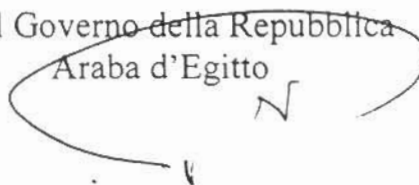 l Governo della Repubblica
Araba d'Egitto